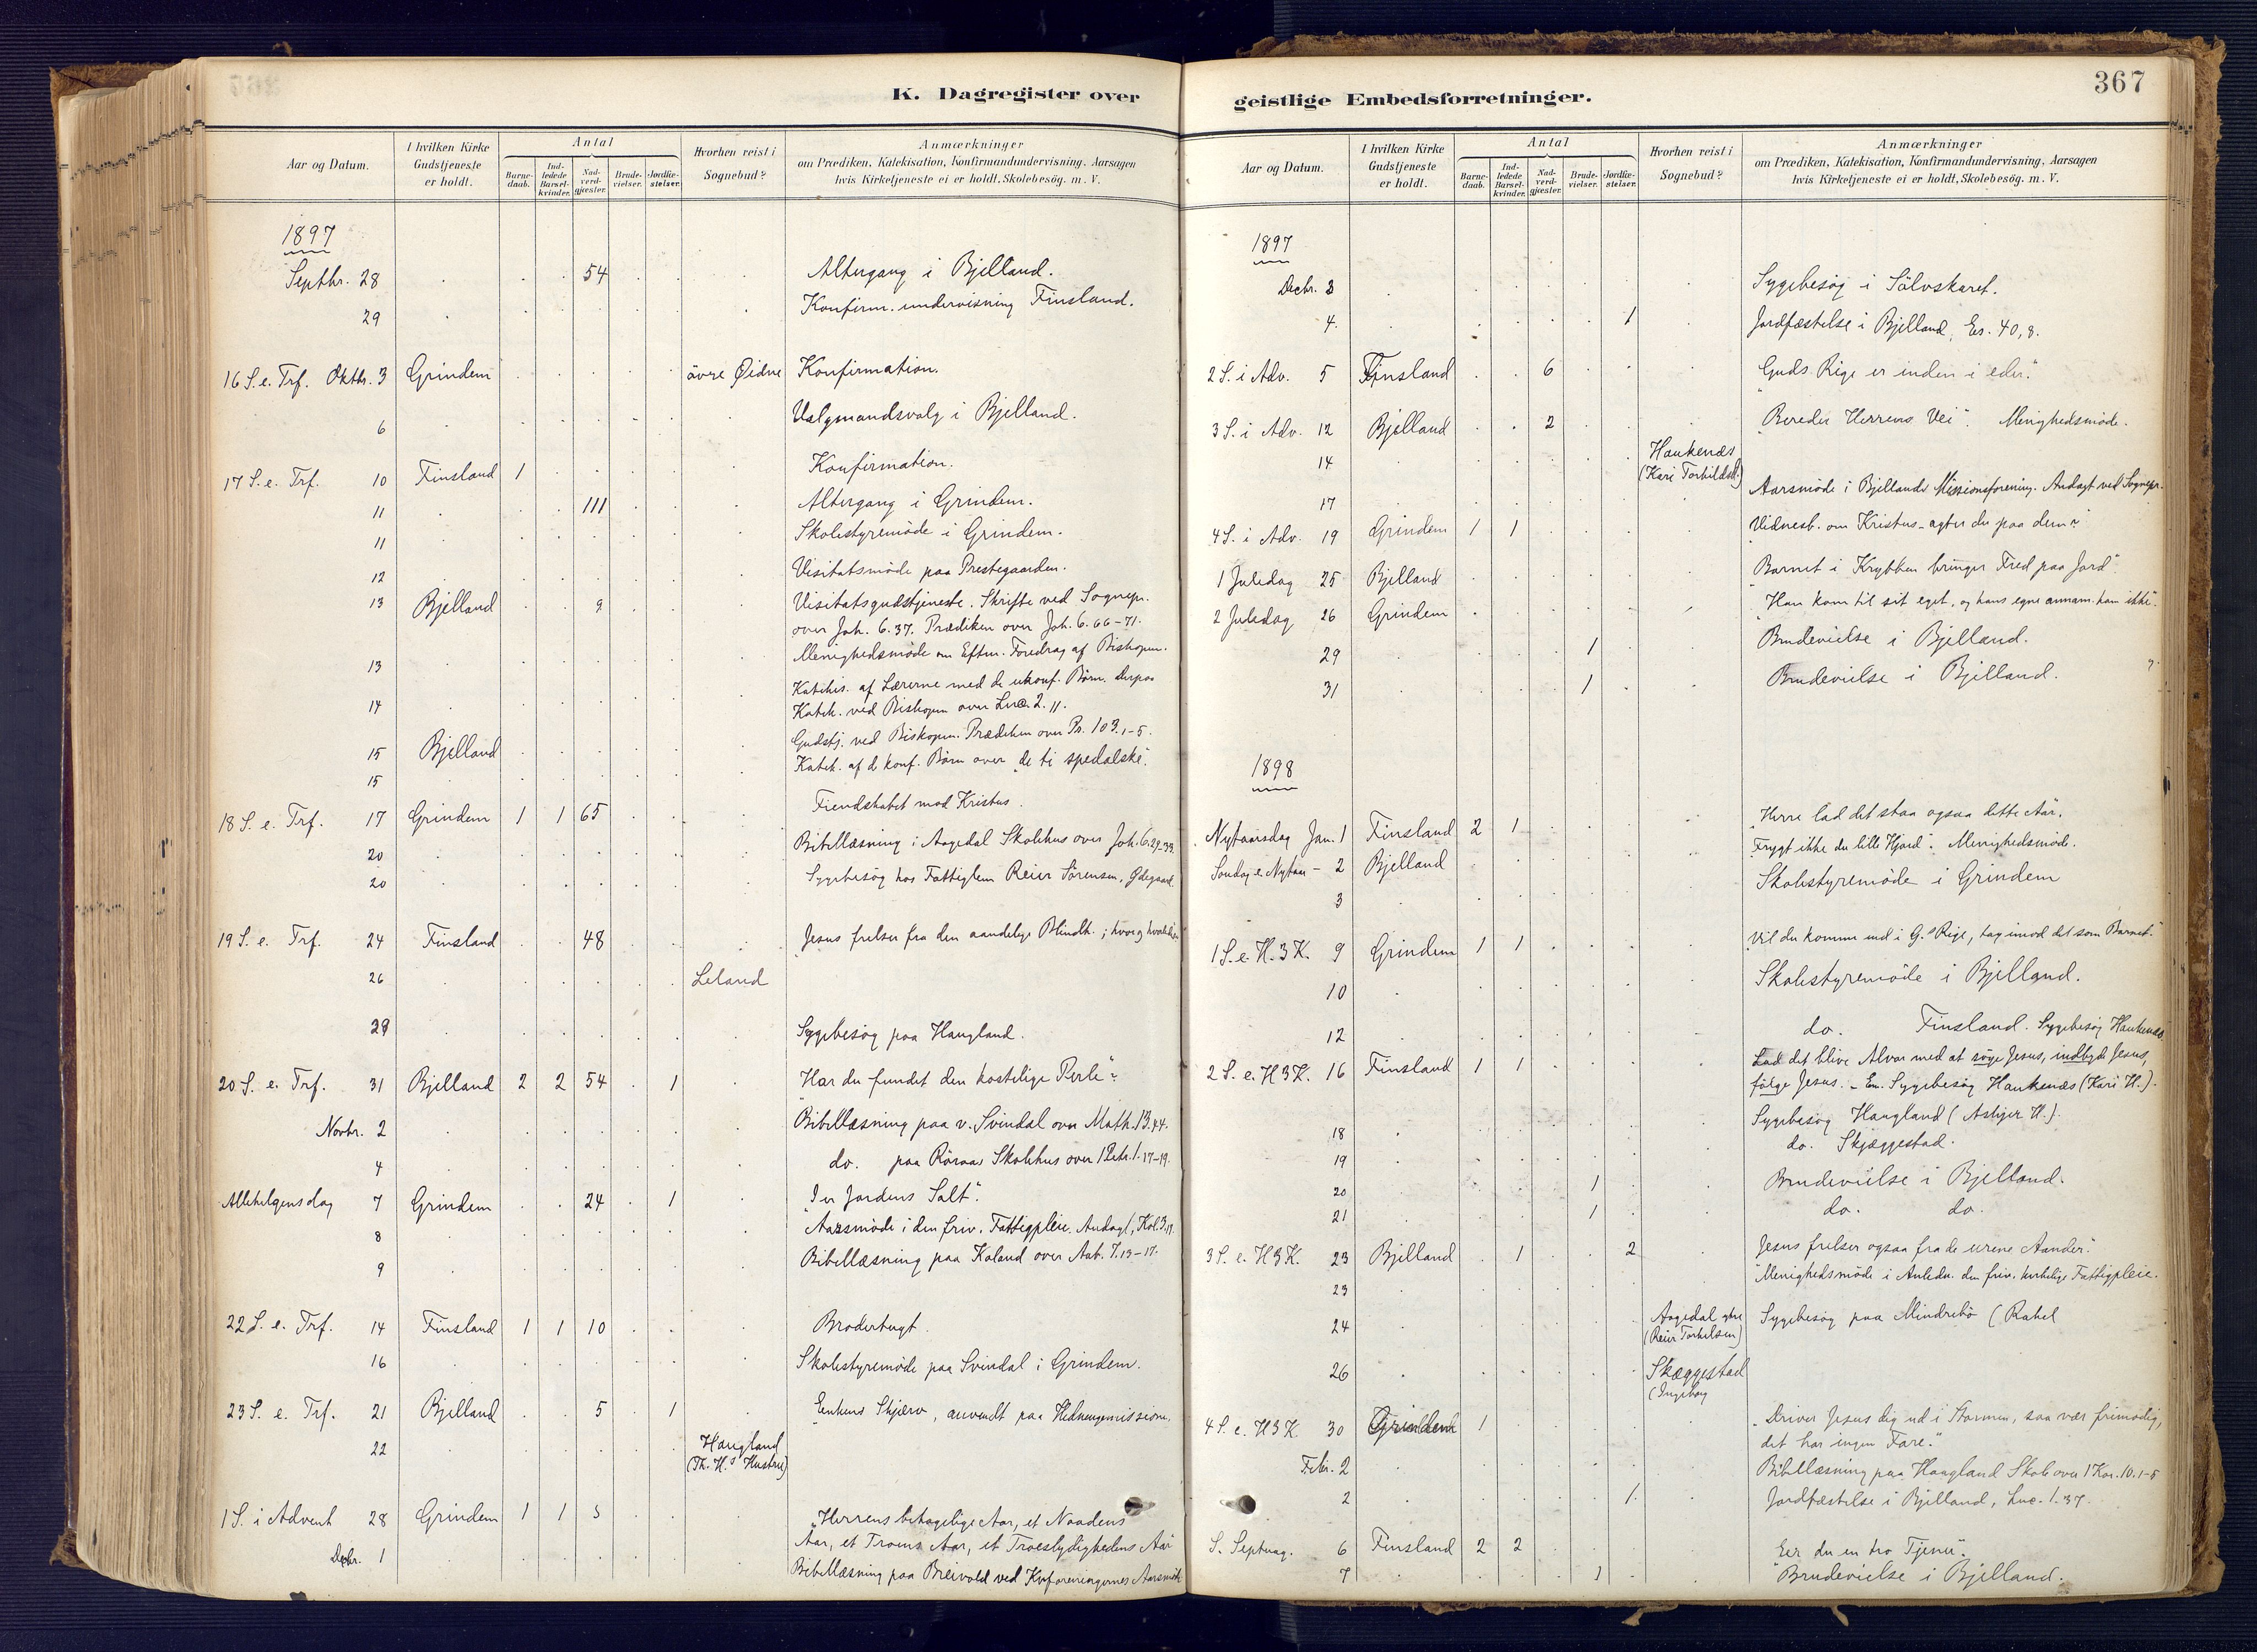 K. Dagregister over
Aar og Datum.
I hvilken Kirke Gudstjeneste er holdt.
Antal
Barne-daab.
Ind-ledede Barsel-kvinder.
Nad-verd-gjester.
Brude-vielser.
Jordfæ-stelser.
Hvorhen reist i Sognebud?
Anmærkninger
om Prædiken, Katekisation, Konfirmandundervisning, Aarsagen
hvis Kirketjeneste ei er holdt, Skolebesög. m. V.
1897
Septbr. 28 54 Altergang i Bjelland.
29 Konfirm. undervisning Finsland.
16 S. e. Trf. Oktbr. 3 Grindem övre Øidne Konfirmation.
6 Valgmandsvalg i Bjelland.
17 S. e. Trf. 10 Finsland 1 Konfirmation.
11 111 Altergang i Grindem.
11 Skolestyremöde i Grindem.
12 Visitatsmöde paa Prestegaarden.
13 Bjelland 9 Visitatsgudstjeneste. Skrifte ved Sognepr.
over Joh. 6.37. Prædiken over Joh. 6.66-71.
13 Menighedsmöde om Efterm. Foredrag af Biskopen.
14 Katekis. af Lærerne med de ukonf. Börn. Derpaa
Katek. ved Biskopen over Luc. 2.11.
15 Bjelland Gudstj. ved Biskopen. Prædiken over Ps. 103.1-5.
15 Katek. af d konf. Börn over "de ti spedalske".
18 S. e. Trf. 17 Grindem 1 1 65 Fiendskabet mod Kristus.
20 Bibellæsning i Aagedal Skolehus over Joh. 6.29-33.
20 Sygebesög hos Fattiglem Reier Sörensen, Ødegaard.
19 S. e. Trf. 24 Finsland 48 Jesus frelser fra den aandelige Blindh.; hvor og hvorledes
26 Leland
29 Sygebesög paa Haugland.
20 S. e. Trf. 31 Bjelland 2 2 54 1 Har du fundet den kostelige Perle"?
Novbr. 2 Bibellæsning paa v. Svindal over Math. 13.44.
4 do. paa Röraas Skolehus over 1 Petr. 1.17-19.
Allehelgensdag 7 Grindem 24 1 "I er Jordens Salt".
8 Aarsmöde i den friv. Fattigpleie. Andagt, Kol. 3.17
9 Bibellæsning paa Kaland over Aab. 7.13-17.
22 S. e. Trf. 14 Finsland 1 1 10 Brodertugt.
16 Skolestyremöde paa Svindal i Grindem.
23 S. e. Trf. 21 Bjelland 5 1 Enkens Skjærv, anvendt paa Hedningemissionen.
22 Haugland
(Th. H.s Hustru)
1 S. i Advent 28 Grindem 1 1 5 "Herrens behagelige Aar, et Naadens
Aar, et Troens Aar, et Troeslydighedens Aar"
Decbr. 1 Bibellæsning paa Breivold ved Kvforeningernes Aarsmöde
geistlige Embedsforretninger.
367
Aar og Datum.
I hvilken Kirke Gudstjeneste er holdt.
Antal
Barne-daab.
Ind-ledede Barsel-kvinder.
Nad-verd-gjester.
Brude-vielser.
Jordfæ-stelser.
Hvorhen reist i Sognebud?
Anmærkninger
om Prædiken, Katekisation, Konfirmandundervisning, Aarsagen
hvis Kirketjeneste ei er holdt, Skolebesög. m. V.
1897
Decbr. 3 Sygebesög i Sölvskaret.
4. 1 Jordfæstelse i Bjelland, Es. 40,8.
2 S. i Adv. 5 Finsland 6 "Guds Rige er inden i eder."
3 S. i Adv. 12 Bjelland 2 "Bereder Herrens Vei". Menighedsmöde.
14 Haukenæs
(Kari Torkildsd.)
17 Aarsmöde i Bjellands Missionsforening. Andagt ved Sognepr.
4 S. i Adv. 19 Grindem 1 1 Vidnesb. om Kristus - agter du paa dem?
1 Juledag 25 Bjelland Barnet i Krybben bringer Fred paa Jord"
2 Juledag 26 Grindem "Han kom til sit eget, og hans egne annam. ham ikke".
29 1 Brudevielse i Bjelland.
31 1 Brudevielse i Bjelland.
1898
Nytaarsdag Jan. 1 Finsland 2 1 "Herre lad det staa ogsaa dette Aar.
Söndag e. Nytaar - 2 Bjelland "Frygt ikke du lille Hjord". Menighedsmöde.
3 Skolestyremöde i Grindem
1 S. e. H. 3 K. 9 Grindem 1 1 "Vil du komme ind i G.s Rige, tag imod det som Barnet."
10 Skolestyremöde i Bjelland.
12 do. Finsland. Sygebesög Haukenæs.
2 S. e. H 3 K. 16 Finsland 1 1 Lad det blive Alvor med at söge Jesus, indbyde Jesus,
fölge Jesus. - Em. Sygebesög Haukenæs (Kari H.).
18 Sygebesög Haugland (Astiger H.).
19 do. Skjæggestad.
20 1 Brudevielse i Bjelland.
21 1 do. do.
3 S. e. H 3 K. 23 Bjelland 1 2 Jesus frelser ogsaa fra de urene Aander".
23 Menighedsmöde i Anledn. den friv. kirkelige Fattigpleie.
24 Aagedal ytre
(Reier Torkelsen) Sygebesög paa Mindrebö (Rakel
26 Skæggestad
(Ingeborg
4 S. e. H 3 K. 30 Grindem 1 "Driver Jesus dig ud i Stormen, saa vær frimodig,
det har ingen Fare."
Febr. 2 Bibellæsning paa Haugland Skole over 1 Kor. 10.1-5
2 1 Jordfæstelse i Bjelland, Luc. 1.37.
S. Septuag. 6 Finsland 2 2 Eer du en tro Tjener".
7 1 Brudevielse i Bjelland.